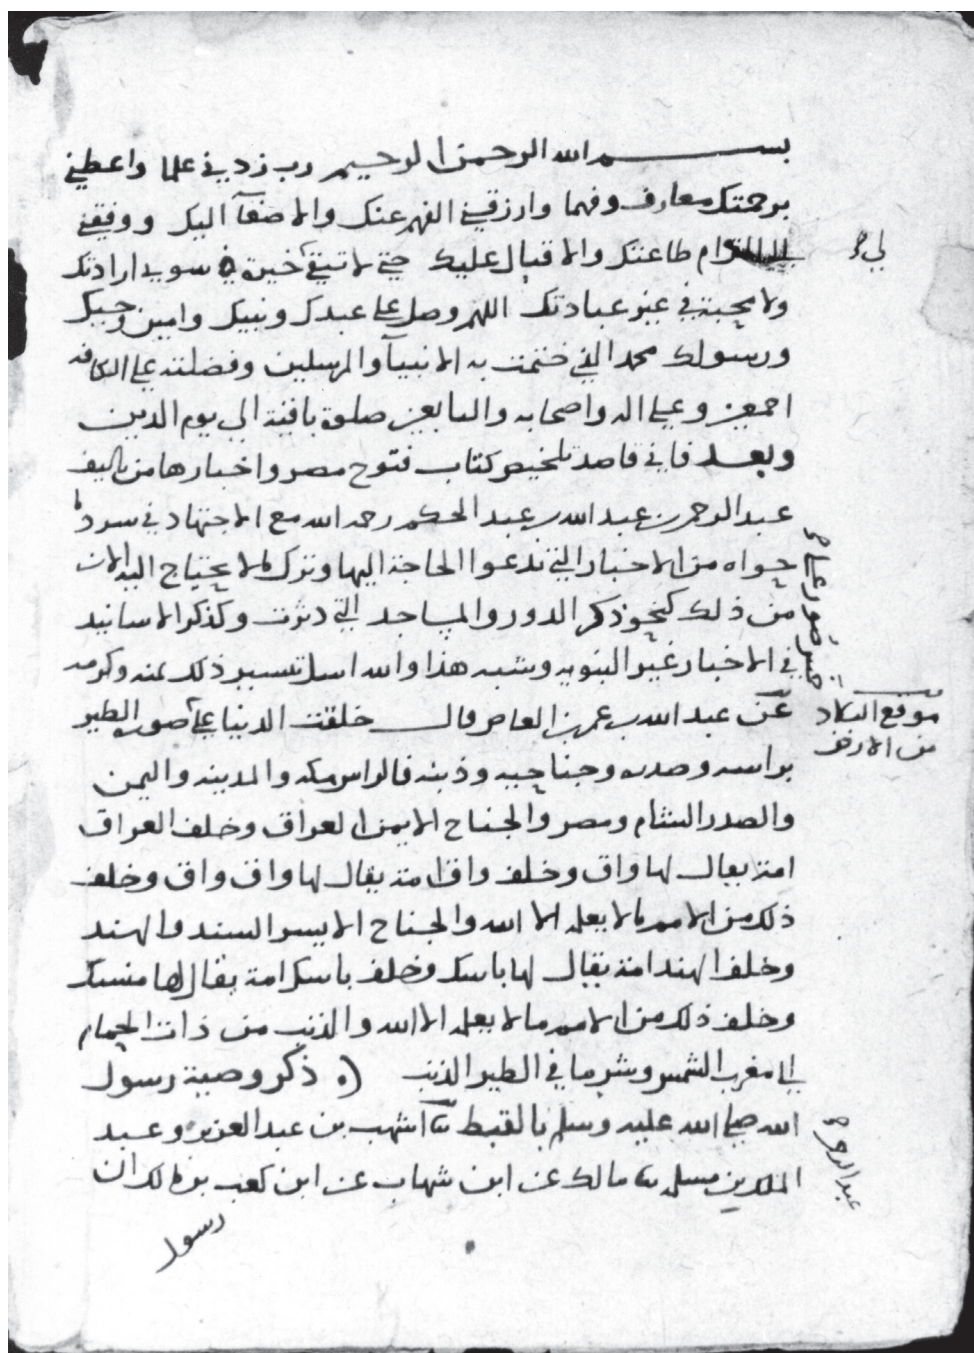 بسم الله الرحمن الرحيم رب زدني علما واعطني
برحمتك معارف وفهما وارزقني الفهم عنك والاصغآ اليك ووفقني
طاعتك والاقبال عليك حتي لا تبقي في سوي ارادتك
ولا محبة في غير عبادتك اللهم وصل علي عبدك ونبيك وامين وحيك
ورسولك محمد الذي ختمت به الانبيآ والمرسلين وفضلته علي الكافه
اجمعين وعلي اله واصحابه والتابعين صلوة باقية الي يوم الدين
وبعد فاني قاصد تلخيص كتاب فتوح مصر واخبارها من تاليف
عبد الرحمن بن عبد الله بن عبد الحكم رحمه الله مع الاجتهاد في سرد ما
حواه من الاخبار التي تدعوا الحاجة اليها وترك ما لا يحتاج اليه الان
من ذلك كنحو ذكر الدور والمساجد التي دثرت وكذكر الاسانيد
في الاخبار غير النبويه وشبه هذا والله اسل تيسير ذلك بمنه وكرمه
عن عبد الله بن عمرو بن العاص قال خلقت الدنيا علي صورة الطير
براسه وصدره وجناحيه وذنبه فالراس مكه والمدينه واليمن
والصدر الشام ومصر والجناح الايمن العراق وخلف العراق
امة يقال لها واق وخلف واق امة يقال لها واق واق وخلف
ذلك من الامم ما لا يعلمه الا الله والجناح الايسر السند والهند
وخلف الهند امة يقال لها باسك وخلف باسك امة يقال لها منسك
وخلف ذلك من الامم ما لا يعلمه الا الله والذنب من ذات الحمام
الي مغرب الشمس وشر ما في الطير الذنب ذكر وصية رسول
الله صلي الله عليه وسلم بالقبط ثنا اشهب بن عبد العزيز وعبد
الملك بن مسلمه ثنا مالك عن ابن شهاب عن ابن كعب بن مالك ان
رسول
خمس صور علي
موقع البلاد
من الارض